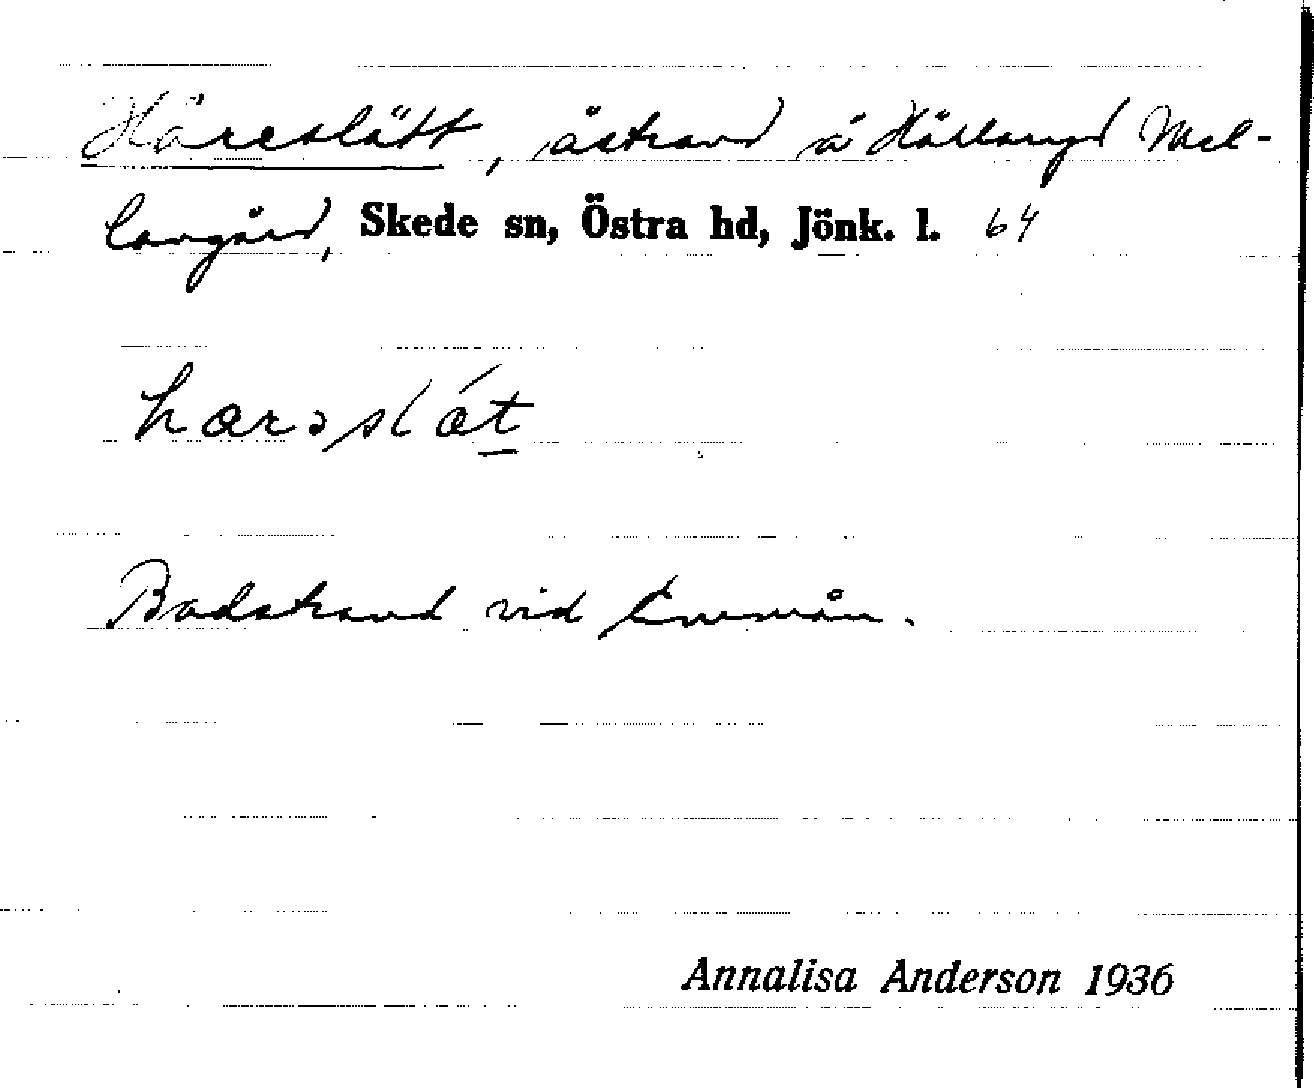 Håreslätt, åstrand å Hällaryd Mel-
langård, Skede sn, Östra hd, Jönk. l. 64
Badstrand vid Emmån.
Annalisa Anderson 1936